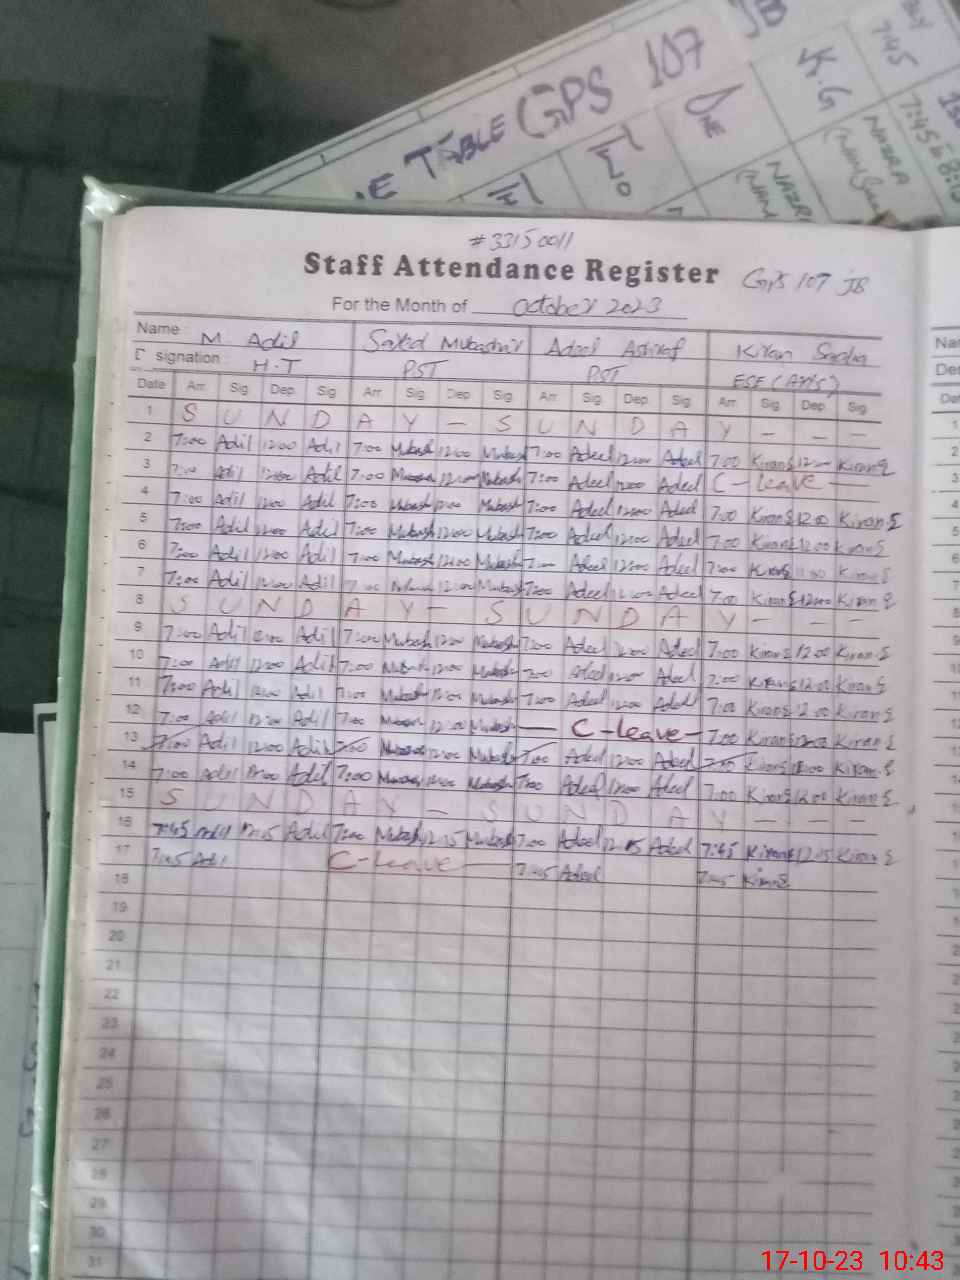 .E TABLE GPS 107 JB
TWO ONE K.G 7:45
NAZRA 7:45 to 8:
# 33150011
Staff Attendance Register GPS 107 JB
For the Month of October 2023
Name : M. Adil Sayed Mubashir Adeel Ashraf Kiran Sadia
D signation : H.T PST PST ESE (Arts)
Date Arr Sig Dep Sig Arr Sig Dep Sig Arr Sig Dep Sig Arr Sig Dep Sig
1 S U N D A Y – S U N D A Y – – –
2 7:00 Adil 12:00 Adil 7:00 Mubash 12:00 Mubash 7:00 Adeel 12:00 Adeel 7:00 Kiran S 12:00 Kiran S
3 7:00 Adil 12:00 Adil 7:00 Mubash 12:00 Mubash 7:00 Adeel 12:00 Adeel C – leave –
4 7:00 Adil 12:00 Adil 7:00 Mubash 12:00 Mubash 7:00 Adeel 12:00 Adeel 7:00 Kiran S 12:00 Kiran S
5 7:00 Adil 12:00 Adil 7:00 Mubash 12:00 Mubash 7:00 Adeel 12:00 Adeel 7:00 Kiran S 12:00 Kiran S
6 7:00 Adil 12:00 Adil 7:00 Mubash 12:00 Mubash 7:00 Adeel 12:00 Adeel 7:00 Kiran S Kiran S
7 7:00 Adil 12:00 Adil 7:00 Mubash 12:00 Mubash 7:00 Adeel 12:00 Adeel 7:00 Kiran S 12:00 Kiran S
8 S U N D A Y – S U N D A Y – – –
9 7:00 Adil 12:00 Adil 7:00 Mubash 12:00 Mubash 7:00 Adeel 12:00 Adeel 7:00 Kiran S 12:00 Kiran S
10 7:00 Adil 12:00 Adil 7:00 Mubash 12:00 Mubash 7:00 Adeel 12:00 Adeel 7:00 Kiran S 12:00 Kiran S
11 7:00 Adil 12:00 Adil 7:00 Mubash 12:00 Mubash 7:00 Adeel 12:00 Adeel 7:00 Kiran S 12:00 Kiran S
12 7:00 Adil 12:00 Adil 7:00 Mubash 12:00 Mubash – C – leave – 7:00 Kiran S 12:00 Kiran S
13 7:00 Adil 12:00 Adil 7:00 Mubash 12:00 Mubash 7:00 Adeel 12:00 Adeel 7:00 Kiran S 12:00 Kiran S
14 7:00 Adil 12:00 Adil 7:00 Mubash 12:00 Mubash 7:00 Adeel 12:00 Adeel 7:00 Kiran S 12:00 Kiran S
15 S U N D A Y – S U N D A Y – – –
16 7:45 Adil 12:15 Adil 7:00 Mubash 12:15 Mubash 7:00 Adeel 12:15 Adeel 7:45 Kiran S 12:15 Kiran S
17 7:45 Adil C – leave – 7:45 Adeel 7:45 Kiran S
18
19
20
21
22
23
24
25
26
27
28
29
30
31
17-10-23 10:43